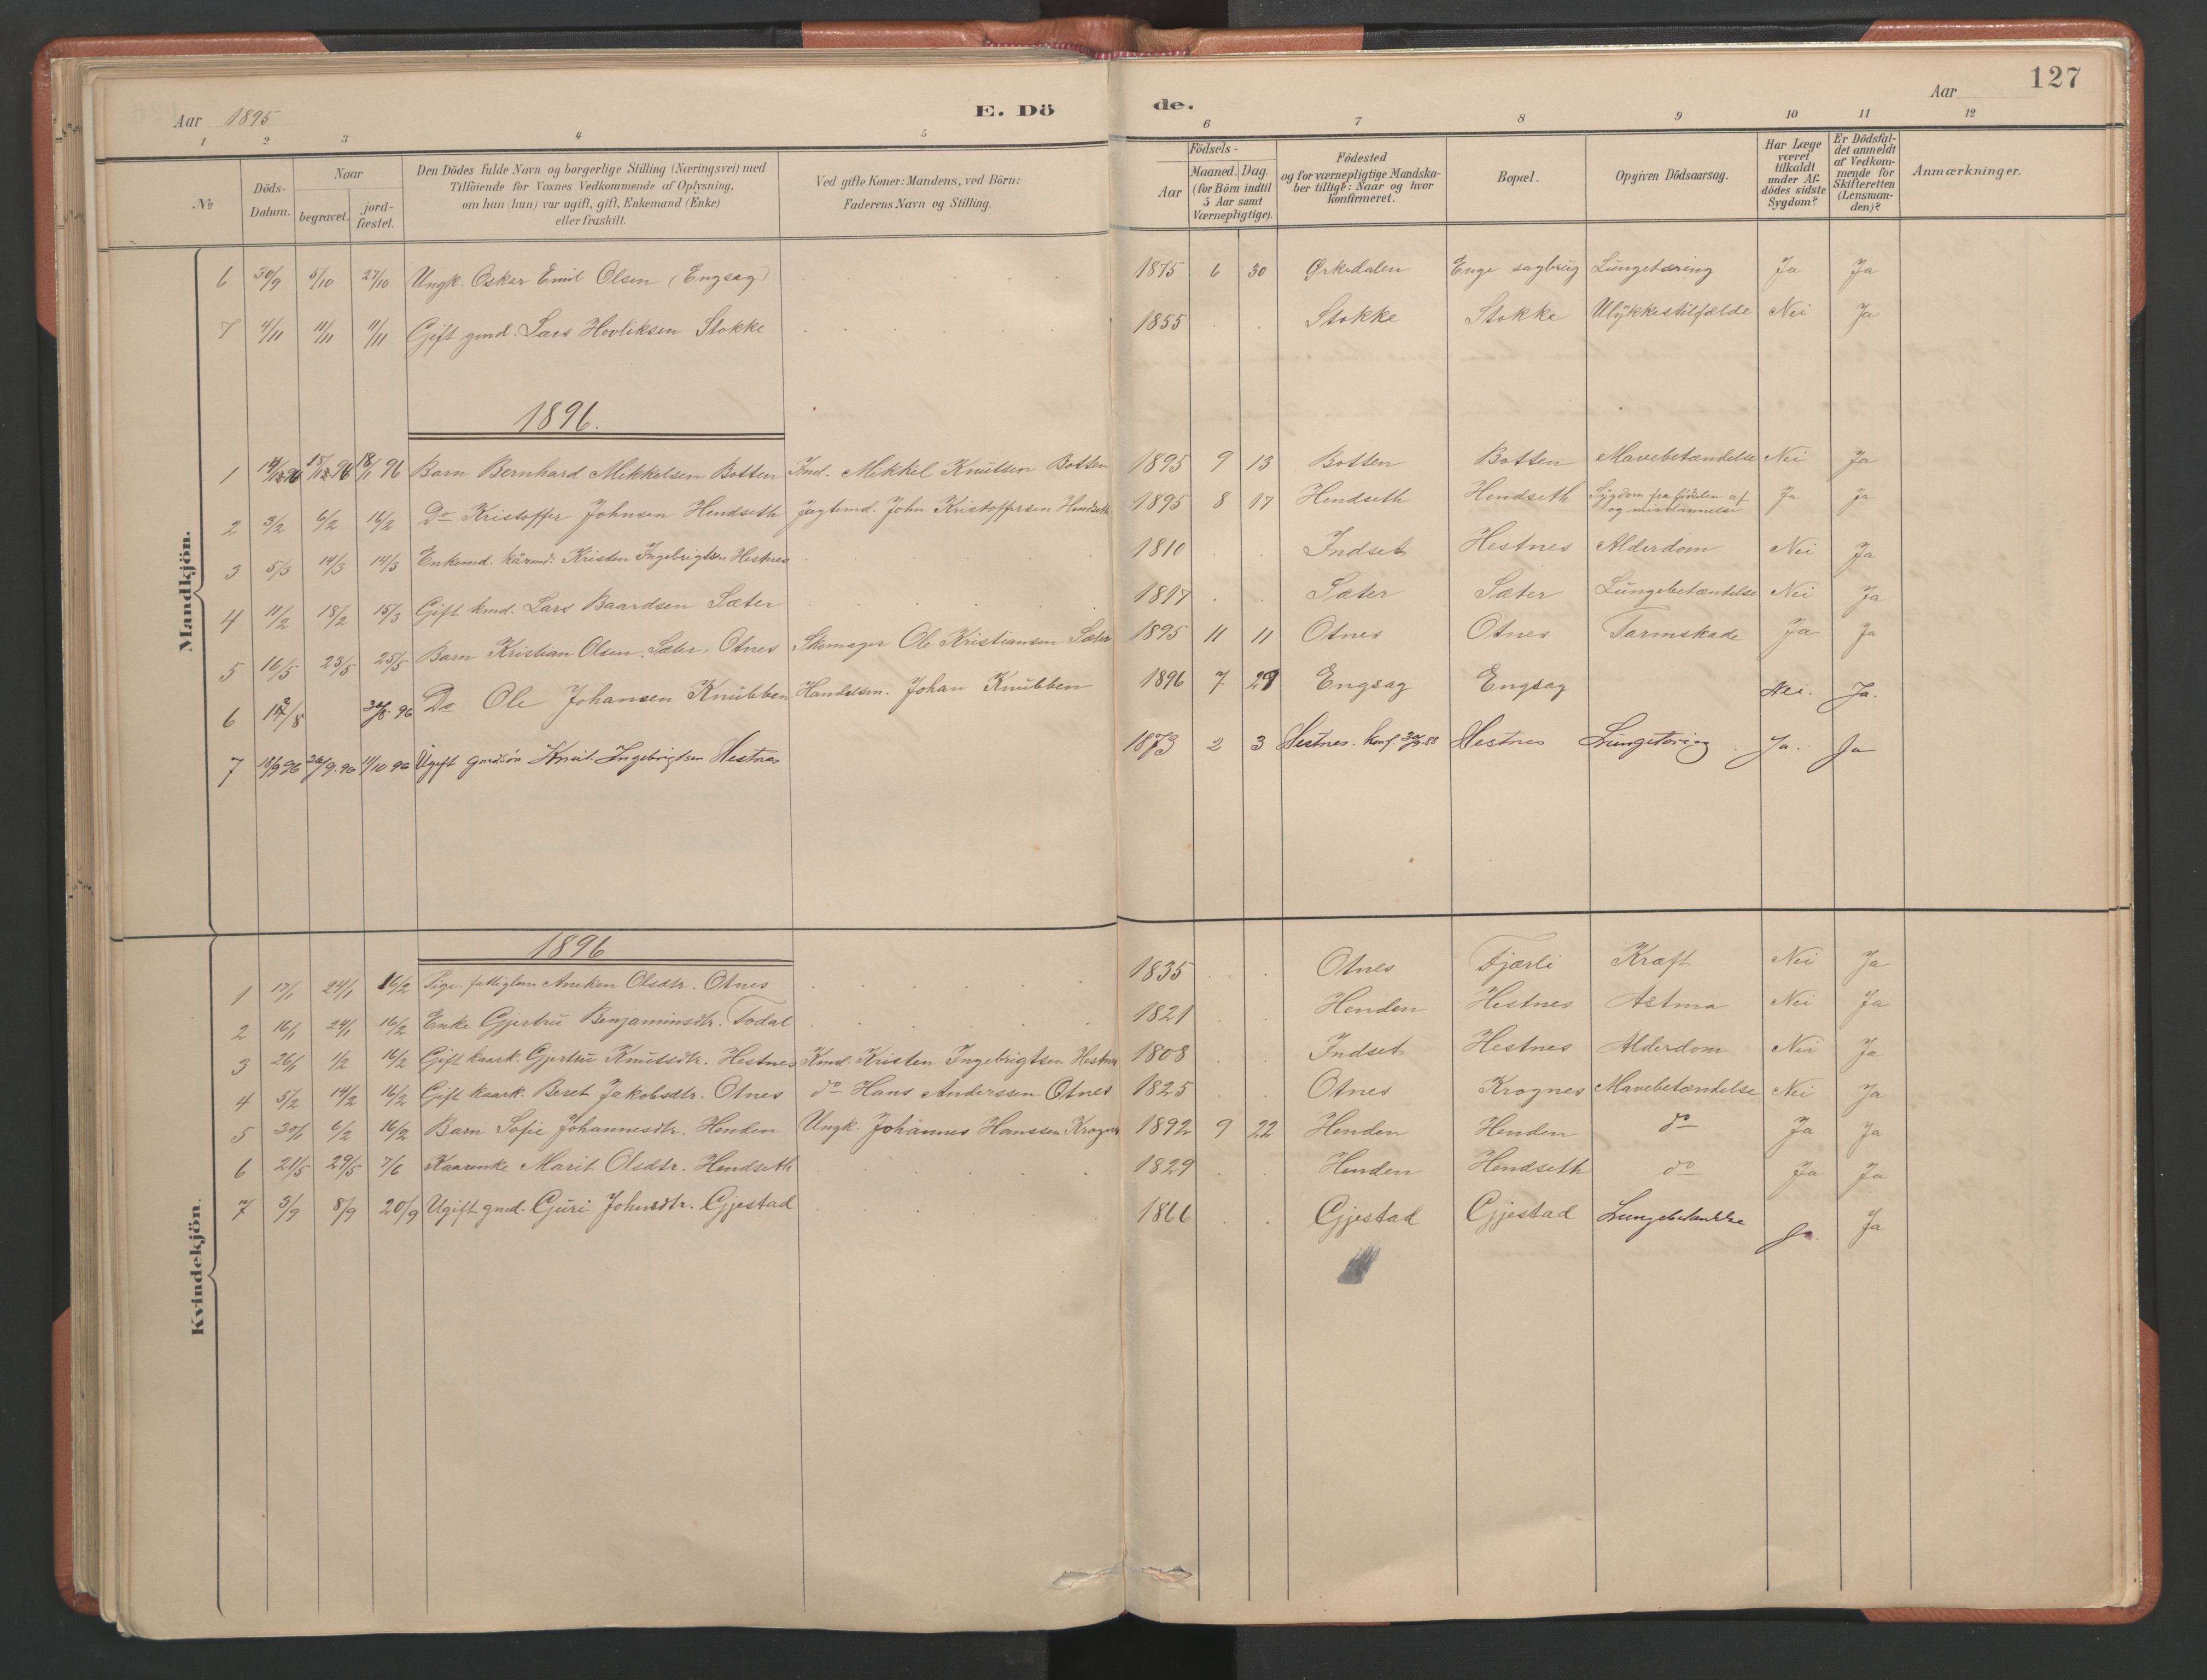 127
Aar 1895
E. Dö
de.
Aar
1 2 3 4 5 6 7 8 9 10 11 12
№
Döds-
Datum.
Naar
begravet.
jord-
fæstet.
Den Dödes fulde Navn og borgerlige Stilling (Næringsvei) med
Tilföiende for Voxnes Vedkommende af Oplysning,
om han (hun) var ugift, gift, Enkemand (Enke)
eller fraskilt.
Ved gifte Koner: Mandens, ved Börn:
Faderens Navn og Stilling.
Födsels-
Aar
Maaned. Dag.
(for Börn indtil
5 Aar samt
Værnepligtige).
Födested
og for værnepligtige Mandska-
ber tillige: Naar og hvor
konfirmeret.
Bopæl.
Opgiven Dödsaarsag.
Har Læge
været
tilkaldt
under Af-
dödes sidste
Sygdom?
Er Dödsfal-
det anmeldt
af Vedkom-
mende for
Skifteretten
(Lensman-
den)?
Anmærkninger.
Mandkjön.
6 30/9 5/10 27/10 Ungk. Oskar Emil Olsen (Engsag) 1875 6 30 Ørkedalen Enge sagbrug Lungetæring Ja Ja
7 4/11 11/11 11/11 Gift gmd. Lars Hovliksen Stokke 1855 Stokke Stokke Ulykkestilfælde Nei Ja
1896.
1 96 96 18/1 96 Barn Bernhard Mikkelsen Botten Ind. Mikkel Knutsen Botten 1895 9 13 Botten Botten Mavebetændelse Nei Ja
2 3/2 6/2 16/2 Do Kristoffer Johnsen Hendseth Jagtemd. John Kristoffersen Hendseth 1895 8 17 Hendseth Hendseth Sygdom fra fødselen af
og misdannelse Ja Ja
3 5/3 14/3 14/3 Enkemd. kårmd. Kristen Ingebrigtsen Hestnes 1810 Indset Hestnes Alderdom Nei Ja
4 11/2 18/2 15/3 Gift kmd. Lars Baardsen Sæter 1817 Sæter Sæter Lungebetændelse Nei Ja
5 16/5 23/5 25/5 Barn Kristian Olsen Sæter, Otnes Skomager Ole Kristiansen Sæter 1895 11 11 Otnes Otnes Tarmskade Ja Ja
6 96 Do Ole Johansen Knubben Handelsm. Johan Knubben 1896 7 29 Engsag Engsag Nei. Ja.
7 18/9 96 26/9. 96 11/10 96 Ugift gmdsøn Knut Ingebrigtsen Hestnes 1873 2 3 Hestnes. Konf. Hestnes Lungetæring Ja. Ja
Kvindekjön.
1896
1 17/1 24/1 16/2 Pige, fattiglem Aneken Olsdtr. Otnes 1835 Otnes Fjærli Kræft Nei Ja
2 16/1 24/1 16/2 Enke Gjertru Benjaminsdtr. Todal 1821 Henden Hestnes Astma Nei Ja
3 26/1 1/2 16/2 Gift kaark. Gjertru Knutsdtr. Hestnes Kmd. Kristen Ingebrigtsen Hestnes 1808 Indset Hestnes Alderdom Nei Ja
4 5/2 14/2 16/2 Gift kaark. Beret Jakobsdtr. Otnes do Hans Anderssen Otnes 1825 Otnes Krognes Mavebetændelse Nei Ja
5 30/1 6/2 16/2 Barn Sofie Johannesdtr. Henden Ungk. Johannes Hanssen Krognes 1892 9 22 Henden Henden do Ja Ja
6 21/5 29/5 7/6 Kaarenke Marit Olsdtr. Hendseth 1829 Henden Hendseth do Ja Ja
7 3/9 8/9 20/9 Ugift gmd. Guri Johnsdtr. Gjestad 1866 Gjestad Gjestad Ja. Ja